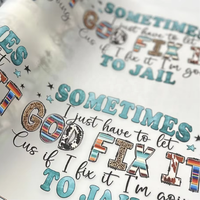 SOMETIMES
just have to let
GOD FIX IT
Cus if I fix it I'm
TO JAIL
SOMETIMES
just have to let
GOD FIX IT
Cus if I fix it I'm
TO JAIL